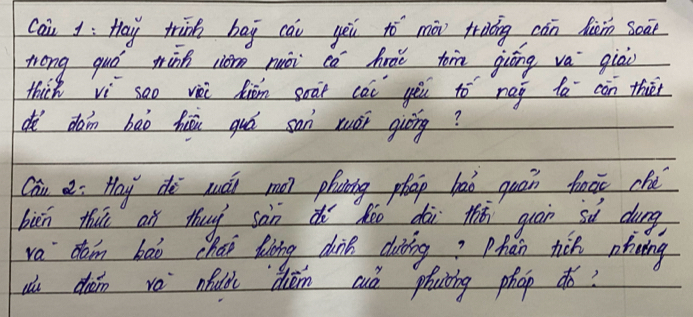 Câu 1: Hãy trình bày các yếu tố môi trường cần kiểm soát
trong quá trình ươm nuôi cá hoặc tôm giống và giải
thích vì sao việc kiểm soát các yếu tố này là cần thiết
để đảm bảo hiệu quả sản xuất giống?
Câu 2: Hãy đề xuất một phương pháp bảo quản hoặc chế
biến thức ăn thuỷ sản để kéo dài thời gian sử dụng
và đảm bảo chất lượng dinh dưỡng? Phân tích những
ưu điểm và nhược điểm của phương pháp đó?